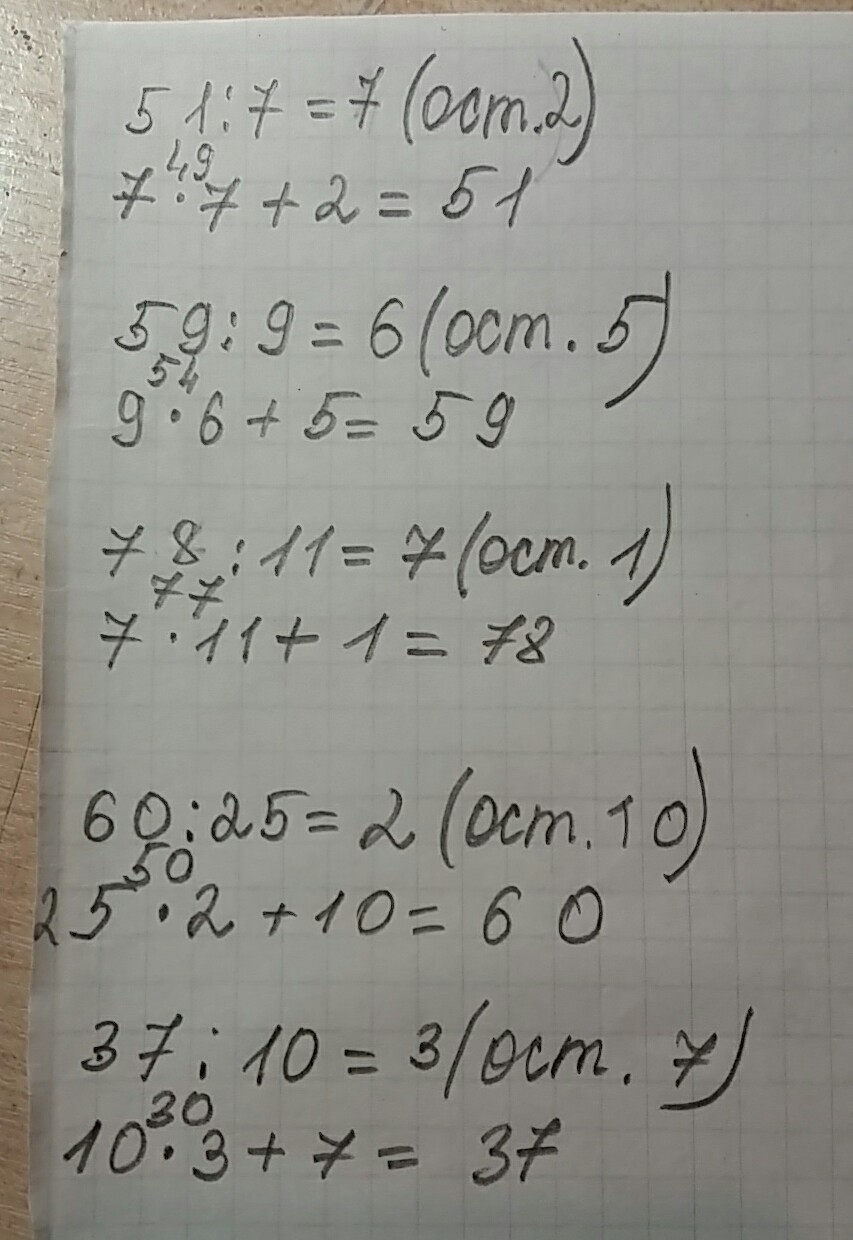 51:7=7(ост.2)
49
7·7+2=51
59:9=6(ост.5)
54
9·6+5=59
78:11=7(ост.1)
77
7·11+1=78
60:25=2(ост.10)
50
25·2+10=60
37:10=3(ост.7)
30
10·3+7=37